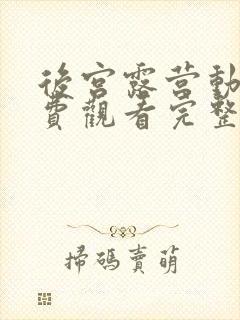 後宮露营動
費觀看完整
掃碼賣萌